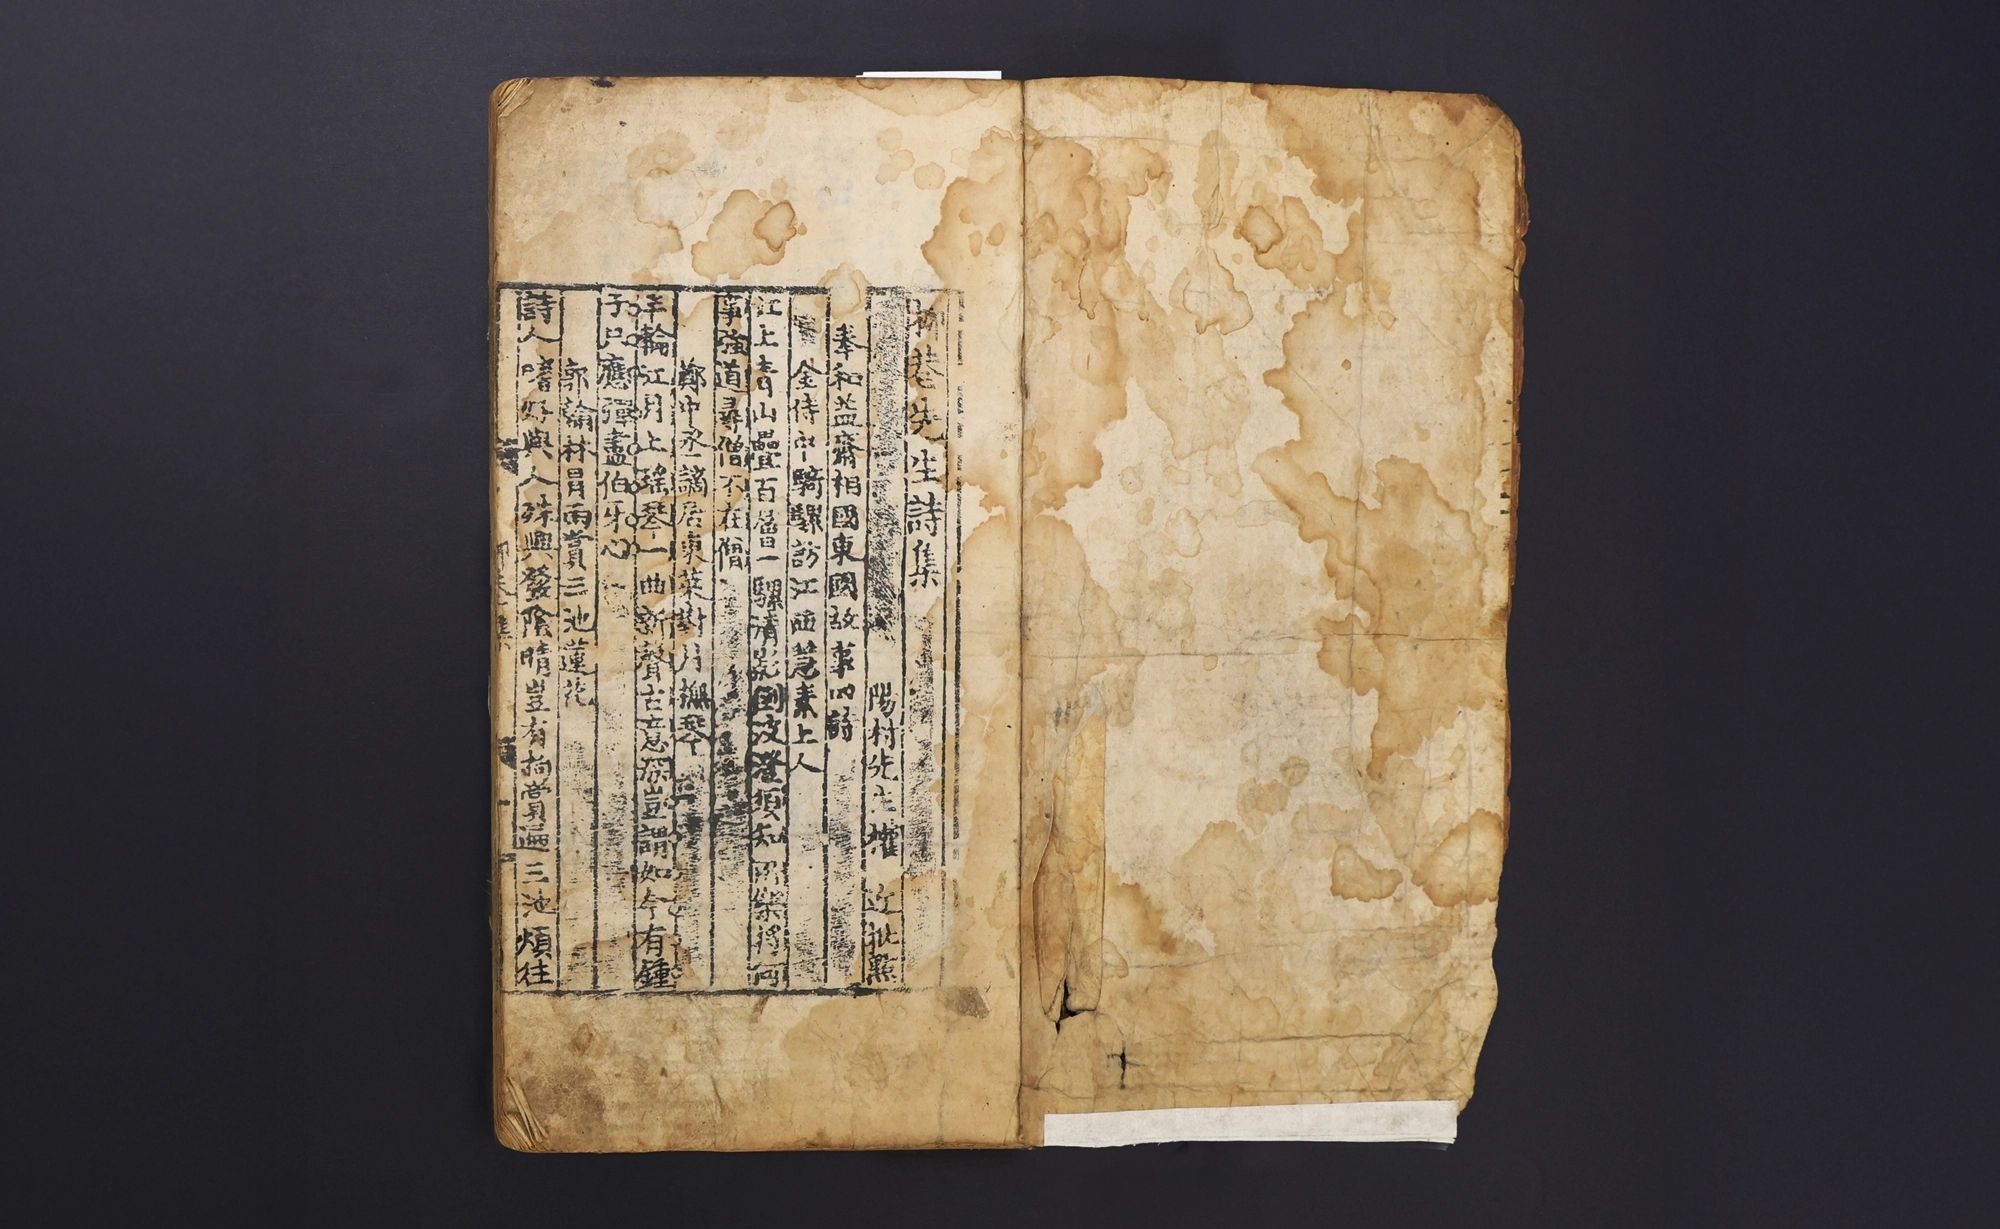 柳巷先生詩集
陽村先生權 近批點
奉和益齋相國東國故事四詩
金侍中騎騾訪江西惠素上人
江上青山疊百層一騾清影倒波澄須知所樂將何
事強道尋僧不在僧
鄭中丞謫居東萊對月撫琴
半輪江月上瑤琴一曲新聲古意深豈謂如今有鍾
子只應彈盡伯牙心
郭翰林冒雨賞三池蓮花
詩人嗜好與人殊興發陰晴豈有拘賞遍三池煩往